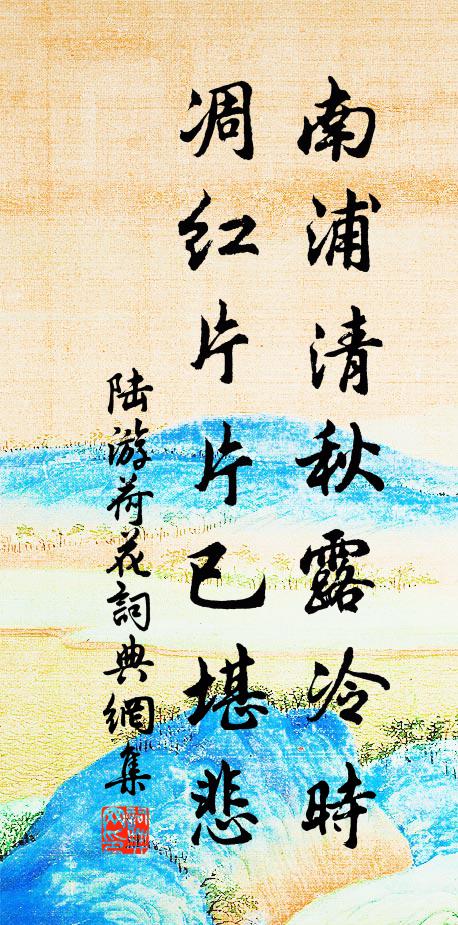 南浦清秋露冷時
凋红片片已堪悲
陆游荷花詞典網集